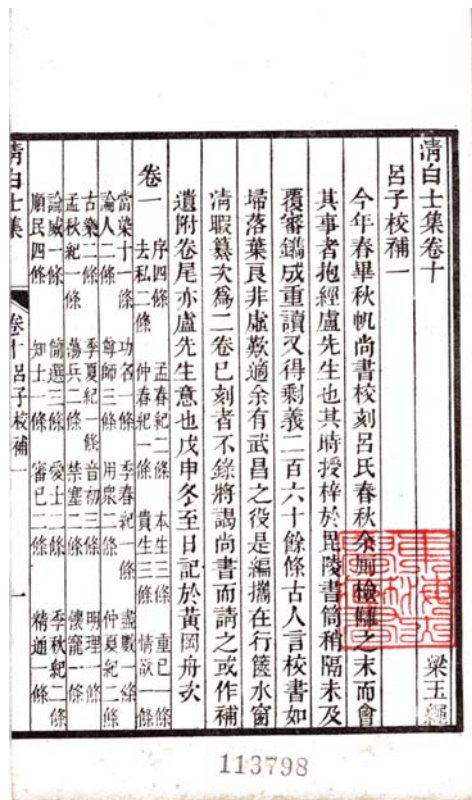 清白士集卷十
呂子校補一 梁玉繩
今年春畢秋帆尚書校刻呂氏春秋余廁檢讎之末而會
其事者抱經盧先生也其時授梓於毘陵書筒稍隔未及
覆審鐫成重讀又得剩義二百六十餘條古人言校書如
埽落葉良非虛歎適余有武昌之役是編攜在行篋水窗
清暇纂次爲二卷已刻者不錄將謁尚書而請之或作補
遺附卷尾亦盧先生意也戊申冬至日記於黃岡舟次
卷一 序四條 孟春紀二條 本生三條 重己一條
去私二條 仲春紀一條 貴生三條 情欲一條
當染十一條 功名一條 季春紀一條 盡數一條
論人二條 尊師三條 用衆二條 仲夏紀二條
古樂二條 季夏紀一條 音初三條 明理一條
孟秋紀一條 蕩兵二條 禁塞二條 懷寵一條
論威一條 簡選三條 愛士二條 季秋紀二條
順民四條 知士一條 審己二條 精通一條
清白士集 卷十呂子校補一 一
113798